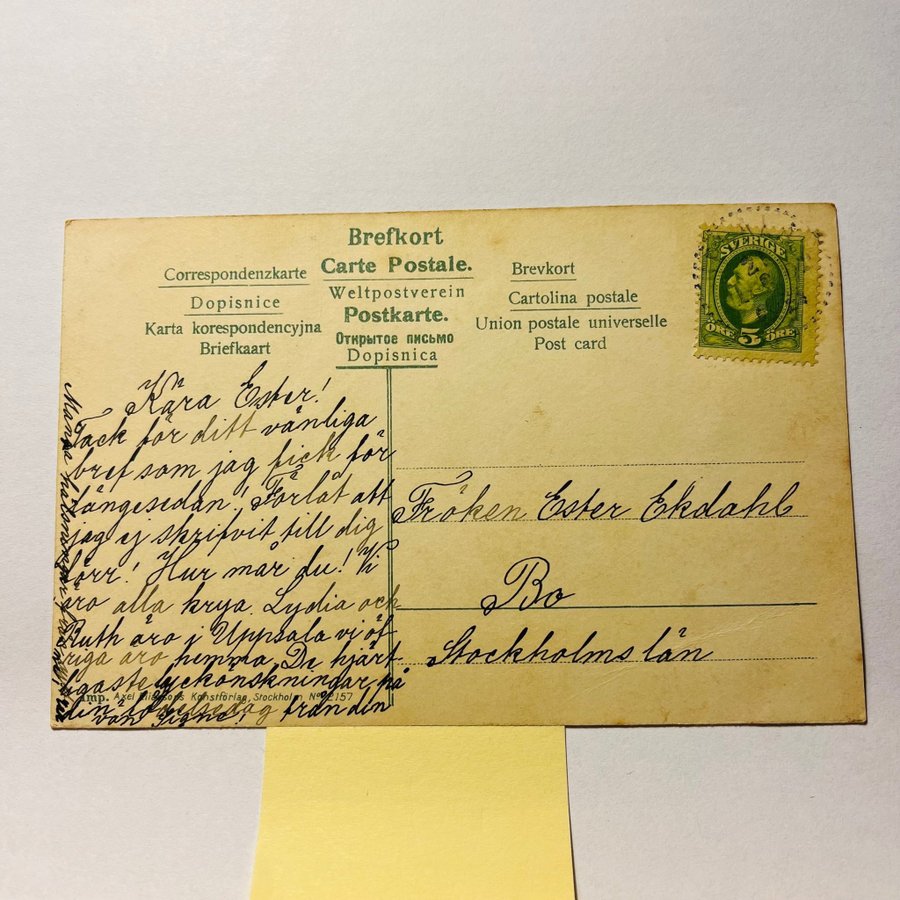 Brefkort
Carte Postale.
Weltpostverein
Postkarte.
Открытое письмо
Dopisnica
Correspondenzkarte
Dopisnice
Karta korespondencyjna
Briefkaart
Brevkort
Cartolina postale
Union postale universelle
Post card
SVERIGE
ÖRE 5 ÖRE
Kära Ester!
Tack för ditt vänliga
bref som jag fick för
längesedan! Förlåt att
jag ej skrifvit till dig
förr! Hur mår du! Vi
äro alla krya. Lydia och
Ruth äro i Uppsala vi öf
riga äro hemma. De hjärt
ligaste lyckönskningar på
din födelsedag från din
vän Signe!
Många hälsningar från
Imp. Axel Eliassons Konstförlag, Stockholm No 2157
Fröken Ester Ekdahl
Bo
Stockholms län